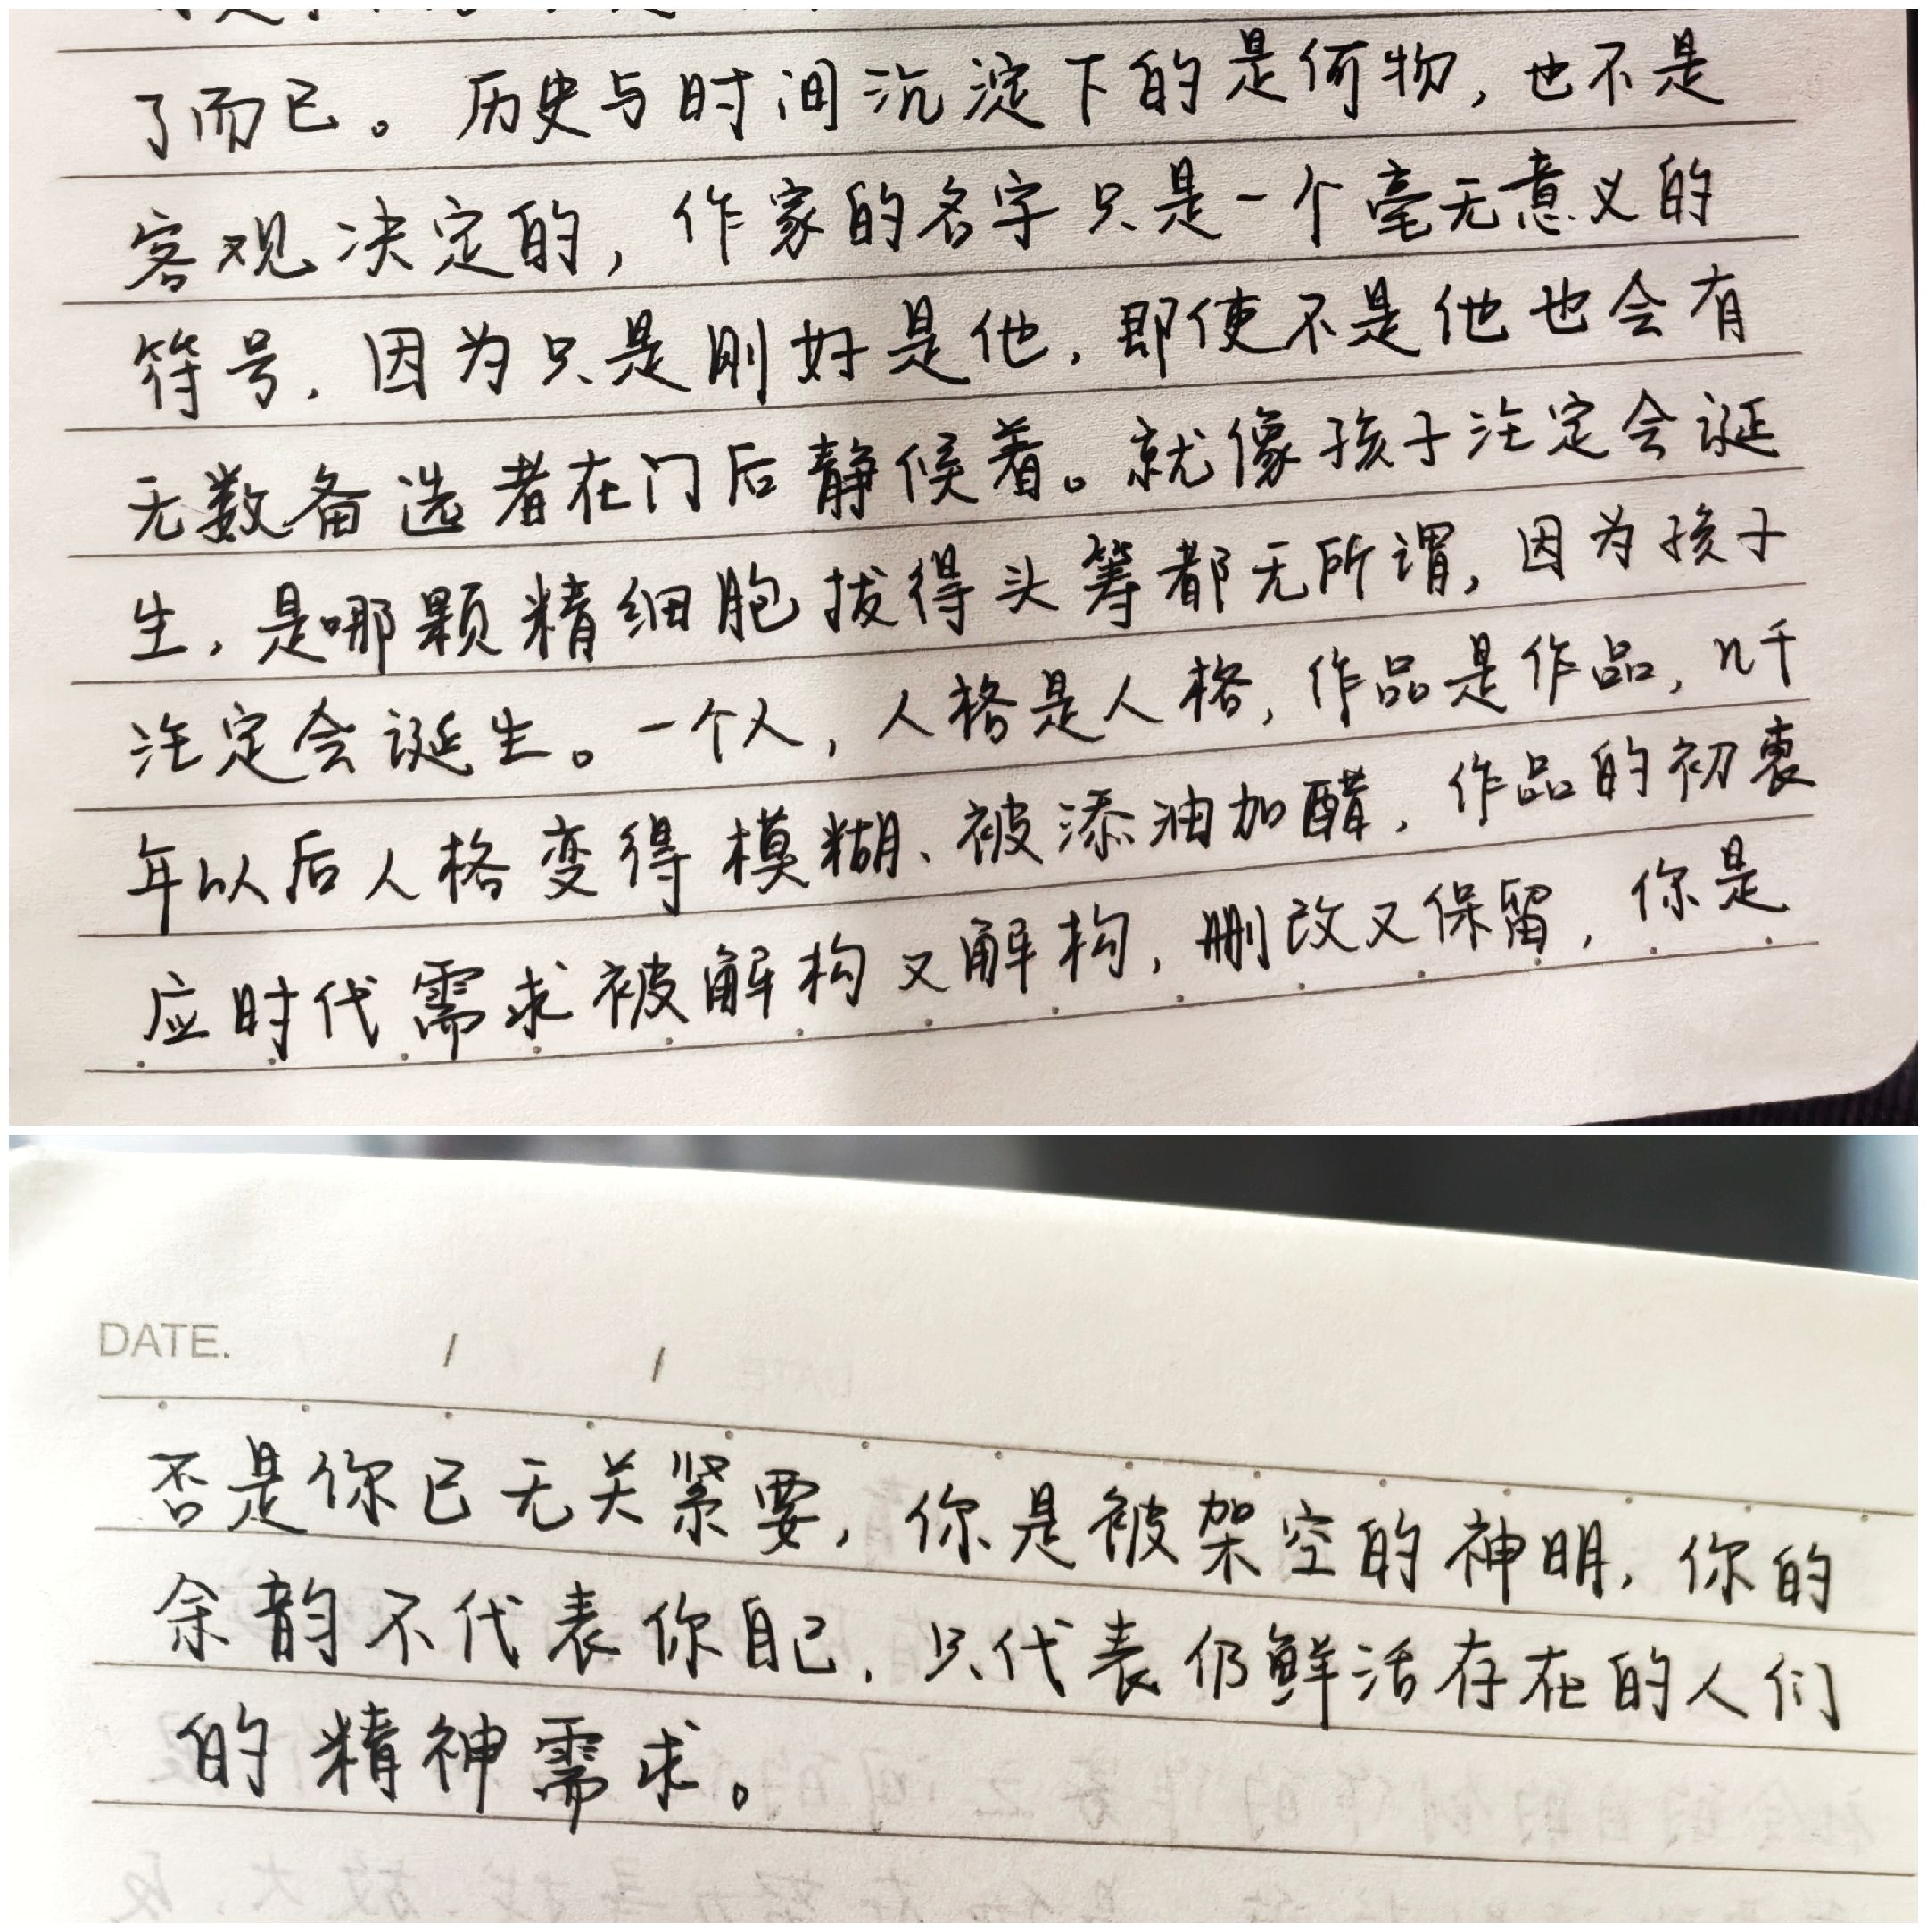 了而已。历史与时间沉淀下的是何物,也不是
客观决定的,作家的名字只是一个毫无意义的
符号,因为只是刚好是他,即使不是他也会有
无数备选者在门后静候着。就像孩子注定会诞
生,是哪颗精细胞拔得头筹都无所谓,因为孩子
注定会诞生。一个人,人格是人格,作品是作品,几千
年以后人格变得模糊、被添油加醋,作品的初衷
应时代需求被解构又解构,删改又保留,你是
DATE. / /
否是你已无关紧要,你是被架空的神明,你的
余韵不代表你自己,只代表仍鲜活存在的人们
的精神需求。